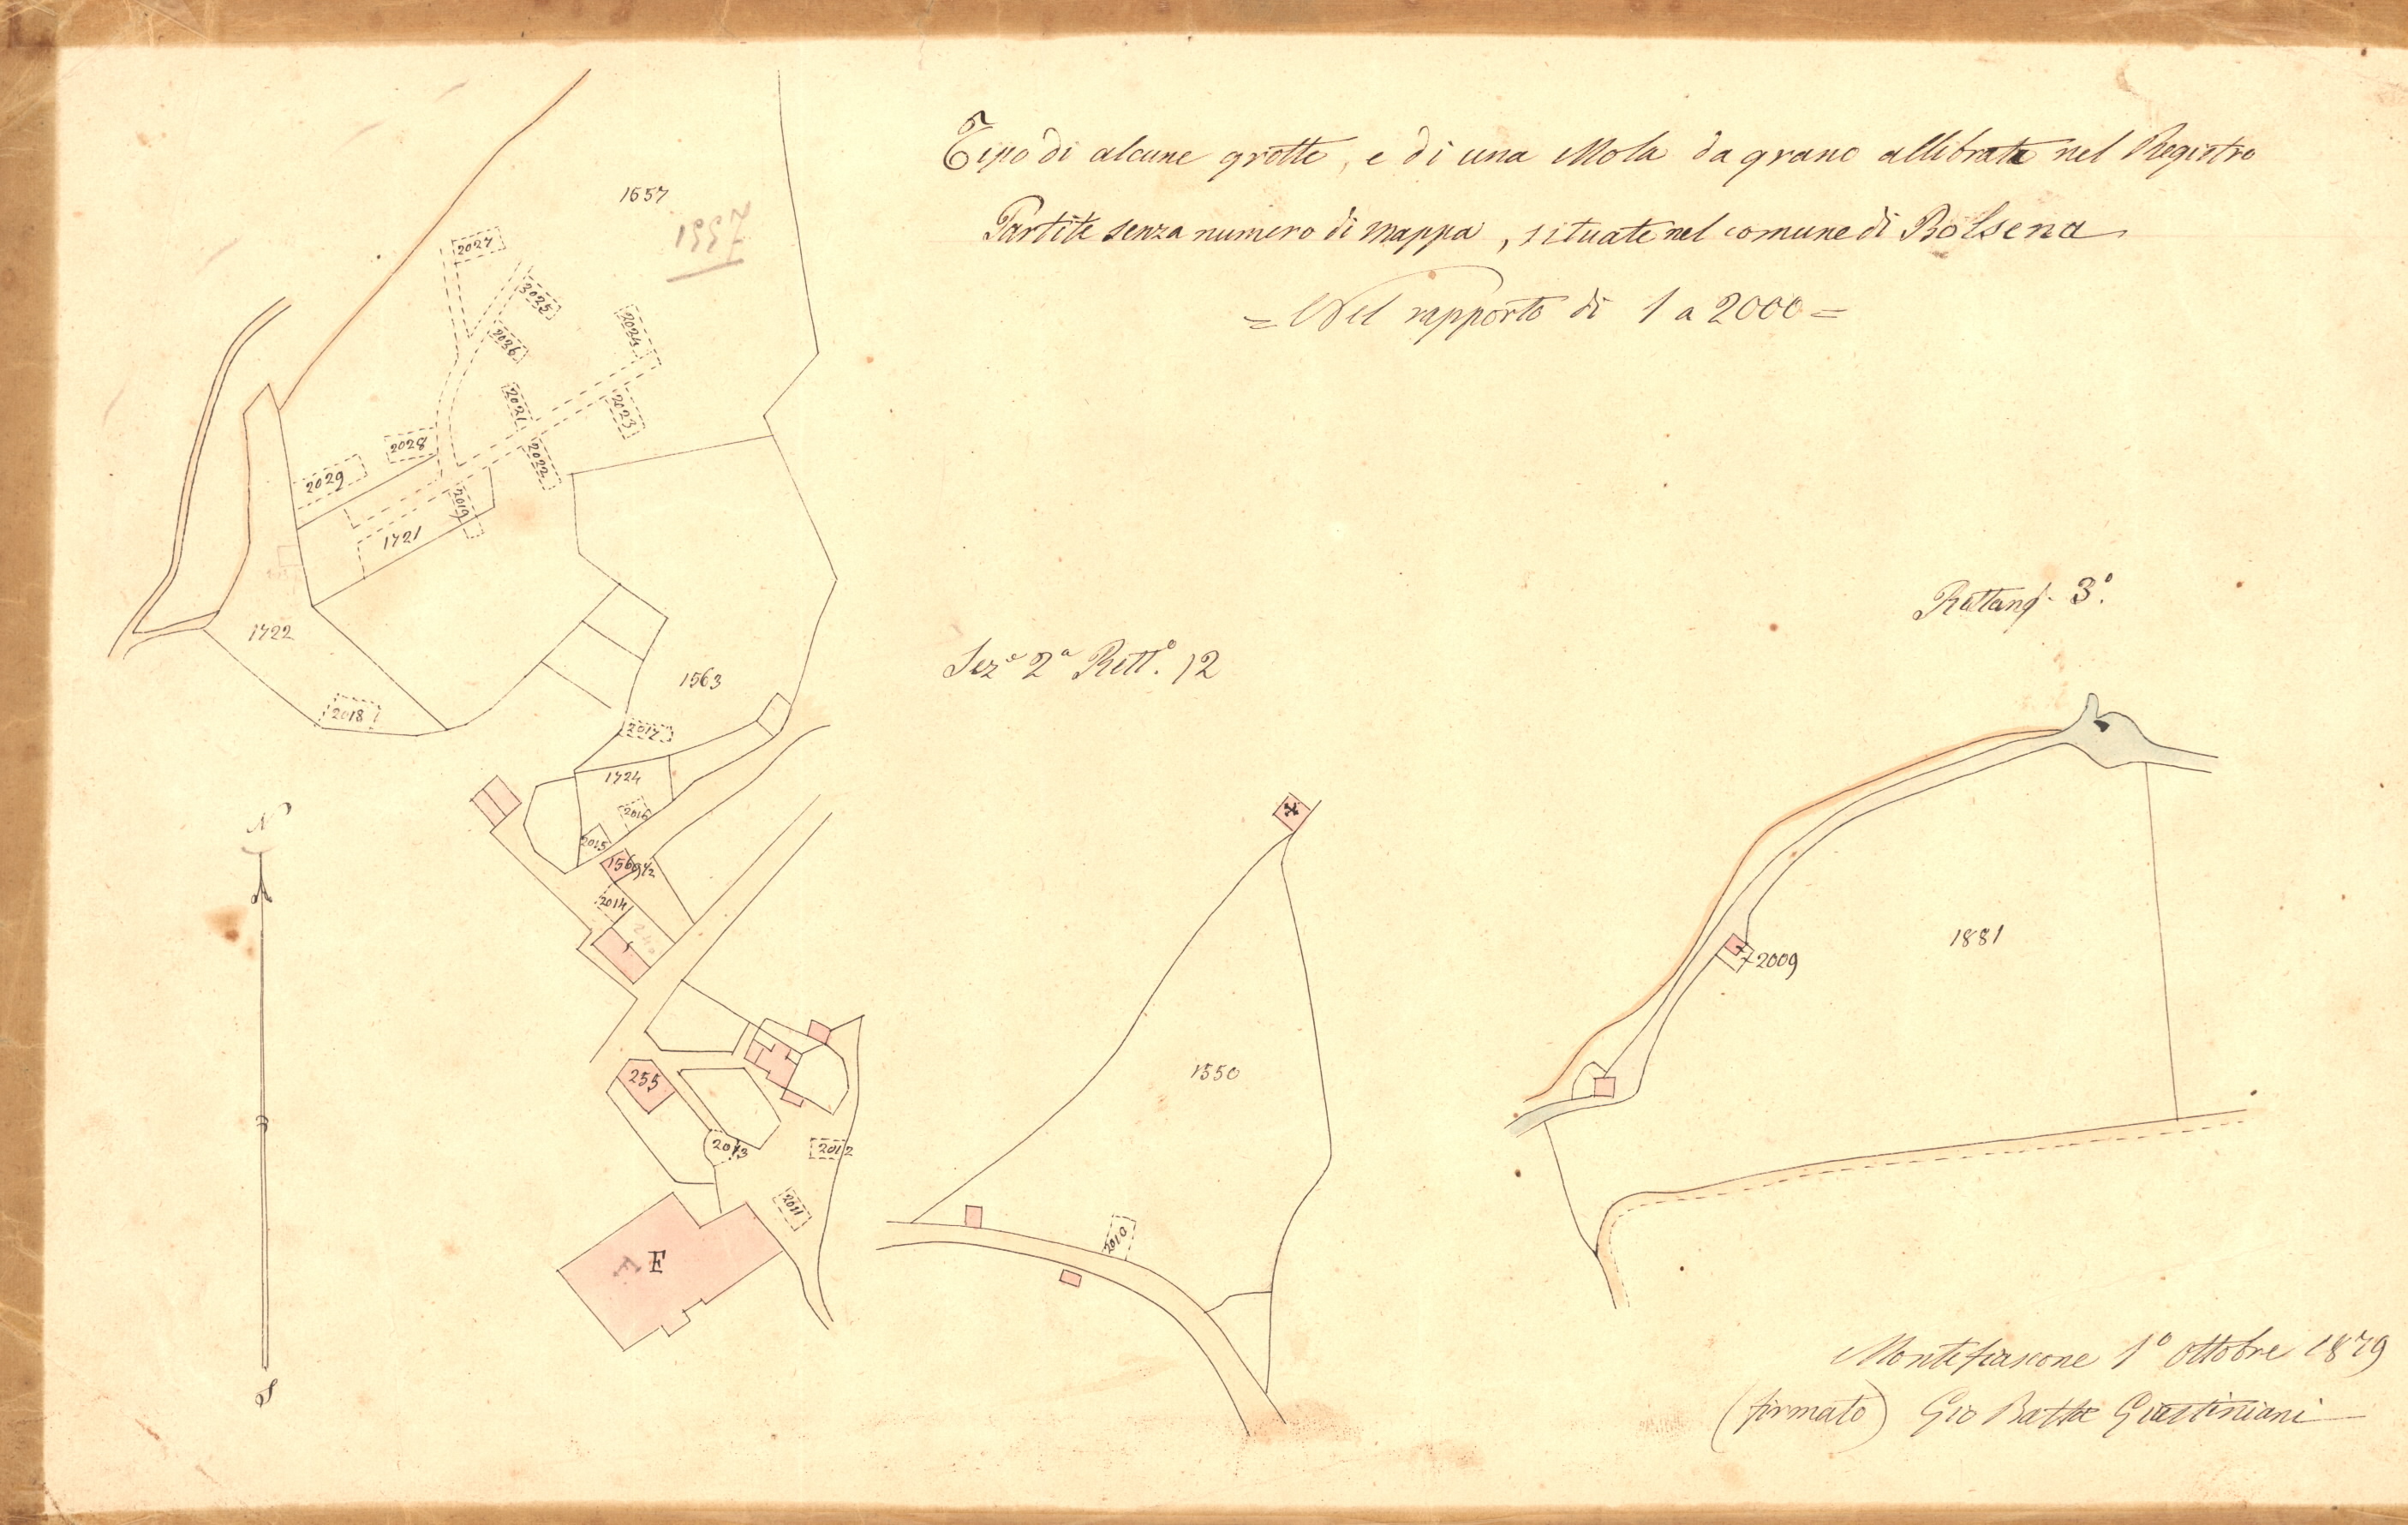 Tipo di alcune grotte, e di una Mola da grano allibrate nel Registro
Partite senza numero di mappa, situate nel comune di Bolsena
= Nel rapporto di 1 a 2000 =
1657
1557
2027
2025
2026
2024
2021
2023
2028
2022
2029
2019
1721
1722
2018
1563
2017
1724
2016
2015
1569 1/2
2014
255
2013
2012
2011
E
N
S
Sez.e 2a Rett.o 12
1550
2010
Rettang. 3.o
1881
2009
Montefiascone 1o Ottobre 1879
(firmato) Gio Batta Giustiniani